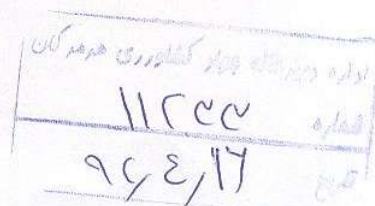 اداره دبیرخانه جهاد کشاورزی هرمزگان
شماره ۱۱۲۳۳
۹۲,۴,۱۶